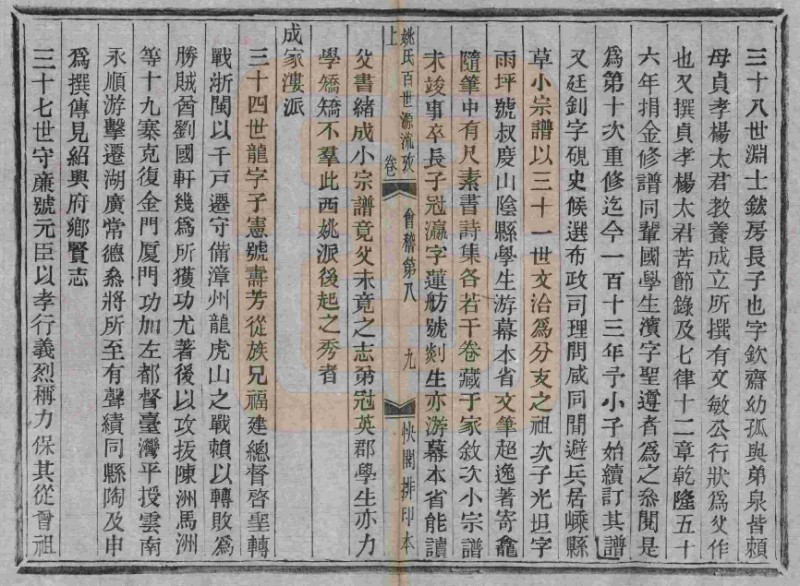 三十八世淵士鋐房長子也字欽齋幼孤與弟泉皆賴
母貞孝楊太君教養成立所撰有文敏公行狀爲父作
也又撰貞孝楊太君苦節錄及七律十二章乾隆五十
六年捐金修譜同輩國學生濱字聖遵者爲之參閱是
爲第十次重修迄今一百十三年予小子始續訂其譜
又廷釗字硯史候選布政司理問咸同間避兵居嵊縣
草小宗譜以三十一世文治爲分支之祖次子光垣字
雨坪號叔慶山陰縣學生游幕本省文筆超逸著寄龕
隨筆中有尺素書詩集各若干卷藏于家敘次小宗譜
未竣事卒長子冠瀛字蓮舫號剡生亦游幕本省能讀
姚氏百世源流攷 卷上 會稽第八 九 快閣排印本
父書緒成小宗譜竟父未竟之志弟冠英郡學生亦力
學矯矯不羣此西姚派後起之秀者
成家漊派
三十四世龍字子憲號壽芳從族兄福建總督啓聖轉
戰浙閩以千戶遷守備漳州龍虎山之戰賴以轉敗爲
勝賊酋劉國軒幾爲所獲功尤著後以攻拔陳洲馬洲
等十九寨克復金門厦門功加左都督臺灣平授雲南
永順游擊遷湖廣常德叅將所至有聲績同縣陶及申
爲撰傳見紹興府鄉賢志
三十七世守廉號元臣以孝行義烈稱力保其從曾祖